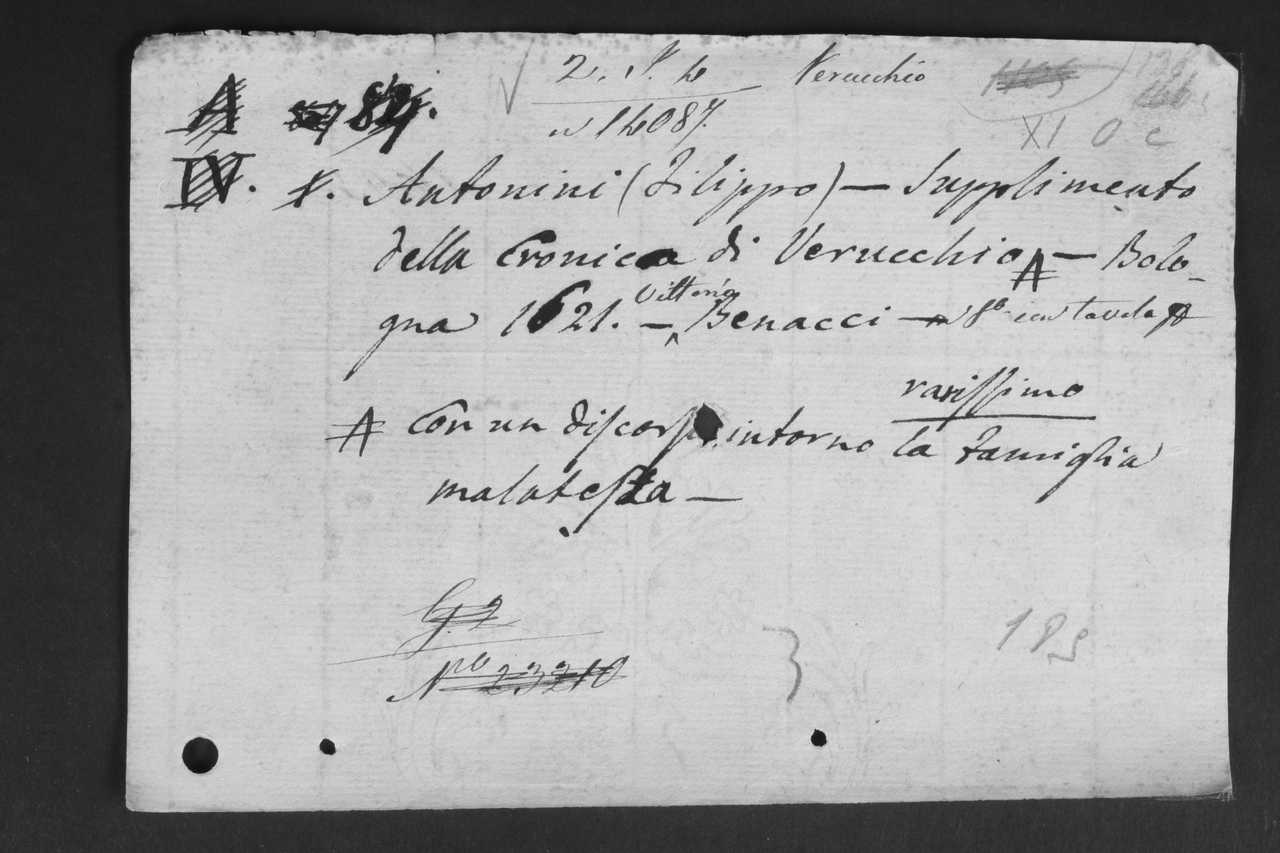 2. S. 4 Verucchio
A 84.
n 14087.
XI O C
IV. X. Antonini (Filippo) — Supplimento
della Cronica di Verucchio A — Bolo-
gna 1621. — Vittorio Benacci — in 8° con tavola A
rarissimo
A Con un discorso intorno la famiglia
malatesta —
G. 2
N.ro 23210
3 185